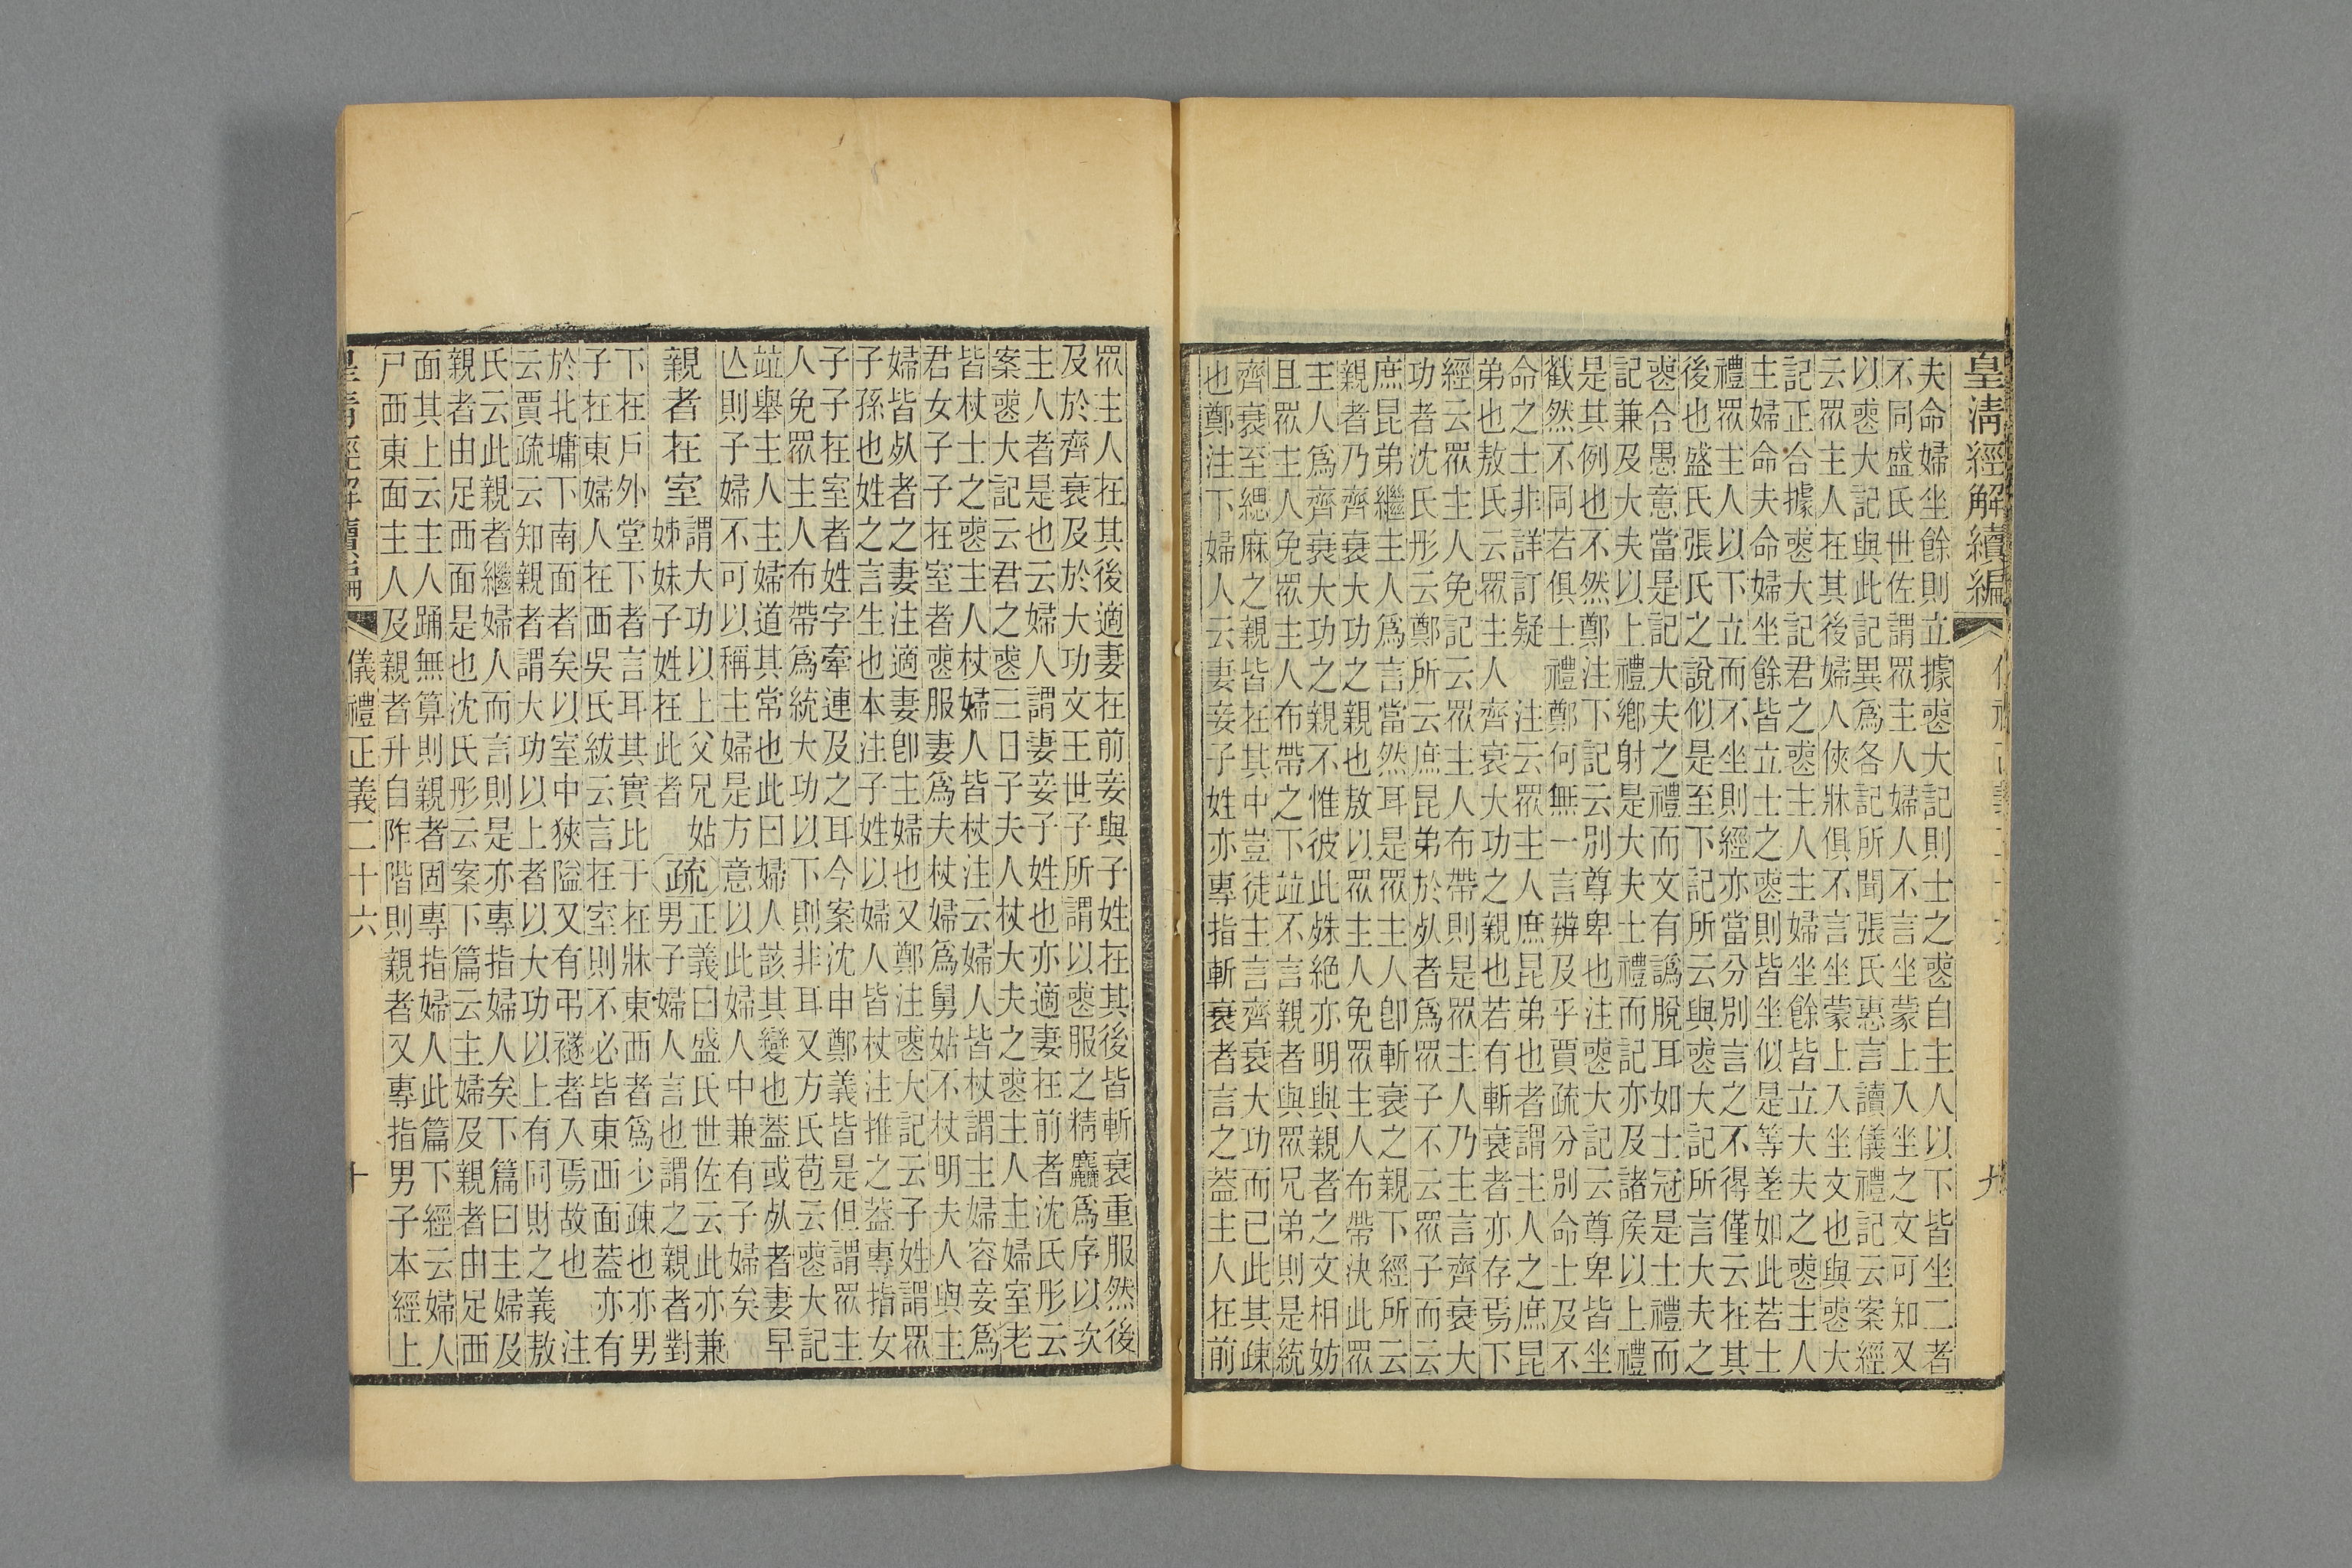 皇清經解續編
夫命婦坐餘則立據喪大記則士之喪自主人以下皆坐二者
不同盛氏世佐謂眾主人婦人不言坐蒙上入坐之文可知又
以喪大記與此記異爲各記所聞張氏惠言讀儀禮記云案經
云眾主人在其後婦人俠牀俱不言坐蒙上入坐文也與喪大
記正合據喪大記君之喪主人主婦坐餘皆立大夫之喪主人
主婦命夫命婦坐餘皆立士之喪則皆坐似是等差如此若士
禮眾主人以下立而不坐則經亦當分別言之不得僅云在其
後也盛氏張氏之說似是至下記所云與喪大記所言大夫之
喪合愚意當是記大夫之禮而文有譌脫耳如士冠是士禮而
記兼及大夫以上禮鄉射是大夫士禮而記亦及諸侯以上禮
是其例也不然鄭注下記云別尊卑也注喪大記云尊卑皆坐
截然不同若俱士禮鄭何無一言辨及乎賈疏分別命士及不
命之士非詳訂疑　注云眾主人庶昆弟也者謂主人之庶昆
弟也敖氏云眾主人齊衰大功之親也若有斬衰者亦存焉下
經云眾主人免記云眾主人布帶則是眾主人乃主言齊衰大
功者沈氏彤云鄭所云庶昆弟於㒵者爲眾子不云眾子而云
庶昆弟繼主人爲言當然耳是眾主人卽斬衰之親下經所云
親者乃齊衰大功之親也敖以眾主人免眾主人布帶決此眾
主人爲齊衰大功之親不惟彼此殊絕亦明與親者之文相妨
且眾主人免眾主人布帶之下竝不言親者與眾兄弟則是統
齊衰至緦麻之親皆在其中豈徒主言齊衰大功而已此其疎
也鄭注下婦人云妻妾子姓亦專指斬衰者言之蓋主人在前
九
眾主人在其後適妻在前妾與子姓在其後皆斬衰重服然後
及於齊衰及於大功文王世子所謂以喪服之精麤爲序以次
主人者是也云婦人謂妻妾子姓也亦適妻在前者沈氏彤云
案喪大記云君之喪三日子夫人杖大夫之喪主人主婦室老
皆杖士之喪主人杖婦人皆杖注云婦人皆杖謂主婦容妾爲
君女子子在室者喪服妻爲夫杖婦爲舅姑不杖明夫人與主
婦皆㒵者之妻注適妻卽主婦也又鄭注喪大記云子姓謂眾
子孫也姓之言生也本注子姓以婦人皆杖注推之蓋專指女
子子在室者姓字牽連及之耳今案沈申鄭義皆是但謂眾主
人免眾主人布帶爲統大功以下則非耳又方氏苞云喪大記
竝舉主人主婦道其常也此曰婦人該其變也蓋或㒵者妻早
亾則子婦不可以稱主婦是方意以此婦人中兼有子婦矣
親者在室謂大功以上父兄姑
姊妹子姓在此者（疏）正義曰盛氏世佐云此亦兼
男子婦人言也謂之親者對
下在戶外堂下者言耳其實比于在牀東西者爲少疎也亦男
子在東婦人在西吳氏紱云言在室則不必皆東西面蓋亦有
於北墉下南面者矣以室中狹隘又有弔襚者入焉故也　注
云賈疏云知親者謂大功以上者以大功以上有同財之義敖
氏云此親者繼婦人而言則是亦專指婦人矣下篇曰主婦及
親者由足西面是也沈氏彤云案下篇云主婦及親者由足西
面其上云主人踊無算則親者固專指婦人此篇下經云婦人
戶西東面主人及親者升自阼階則親者又專指男子本經上
儀禮正義二十六
十